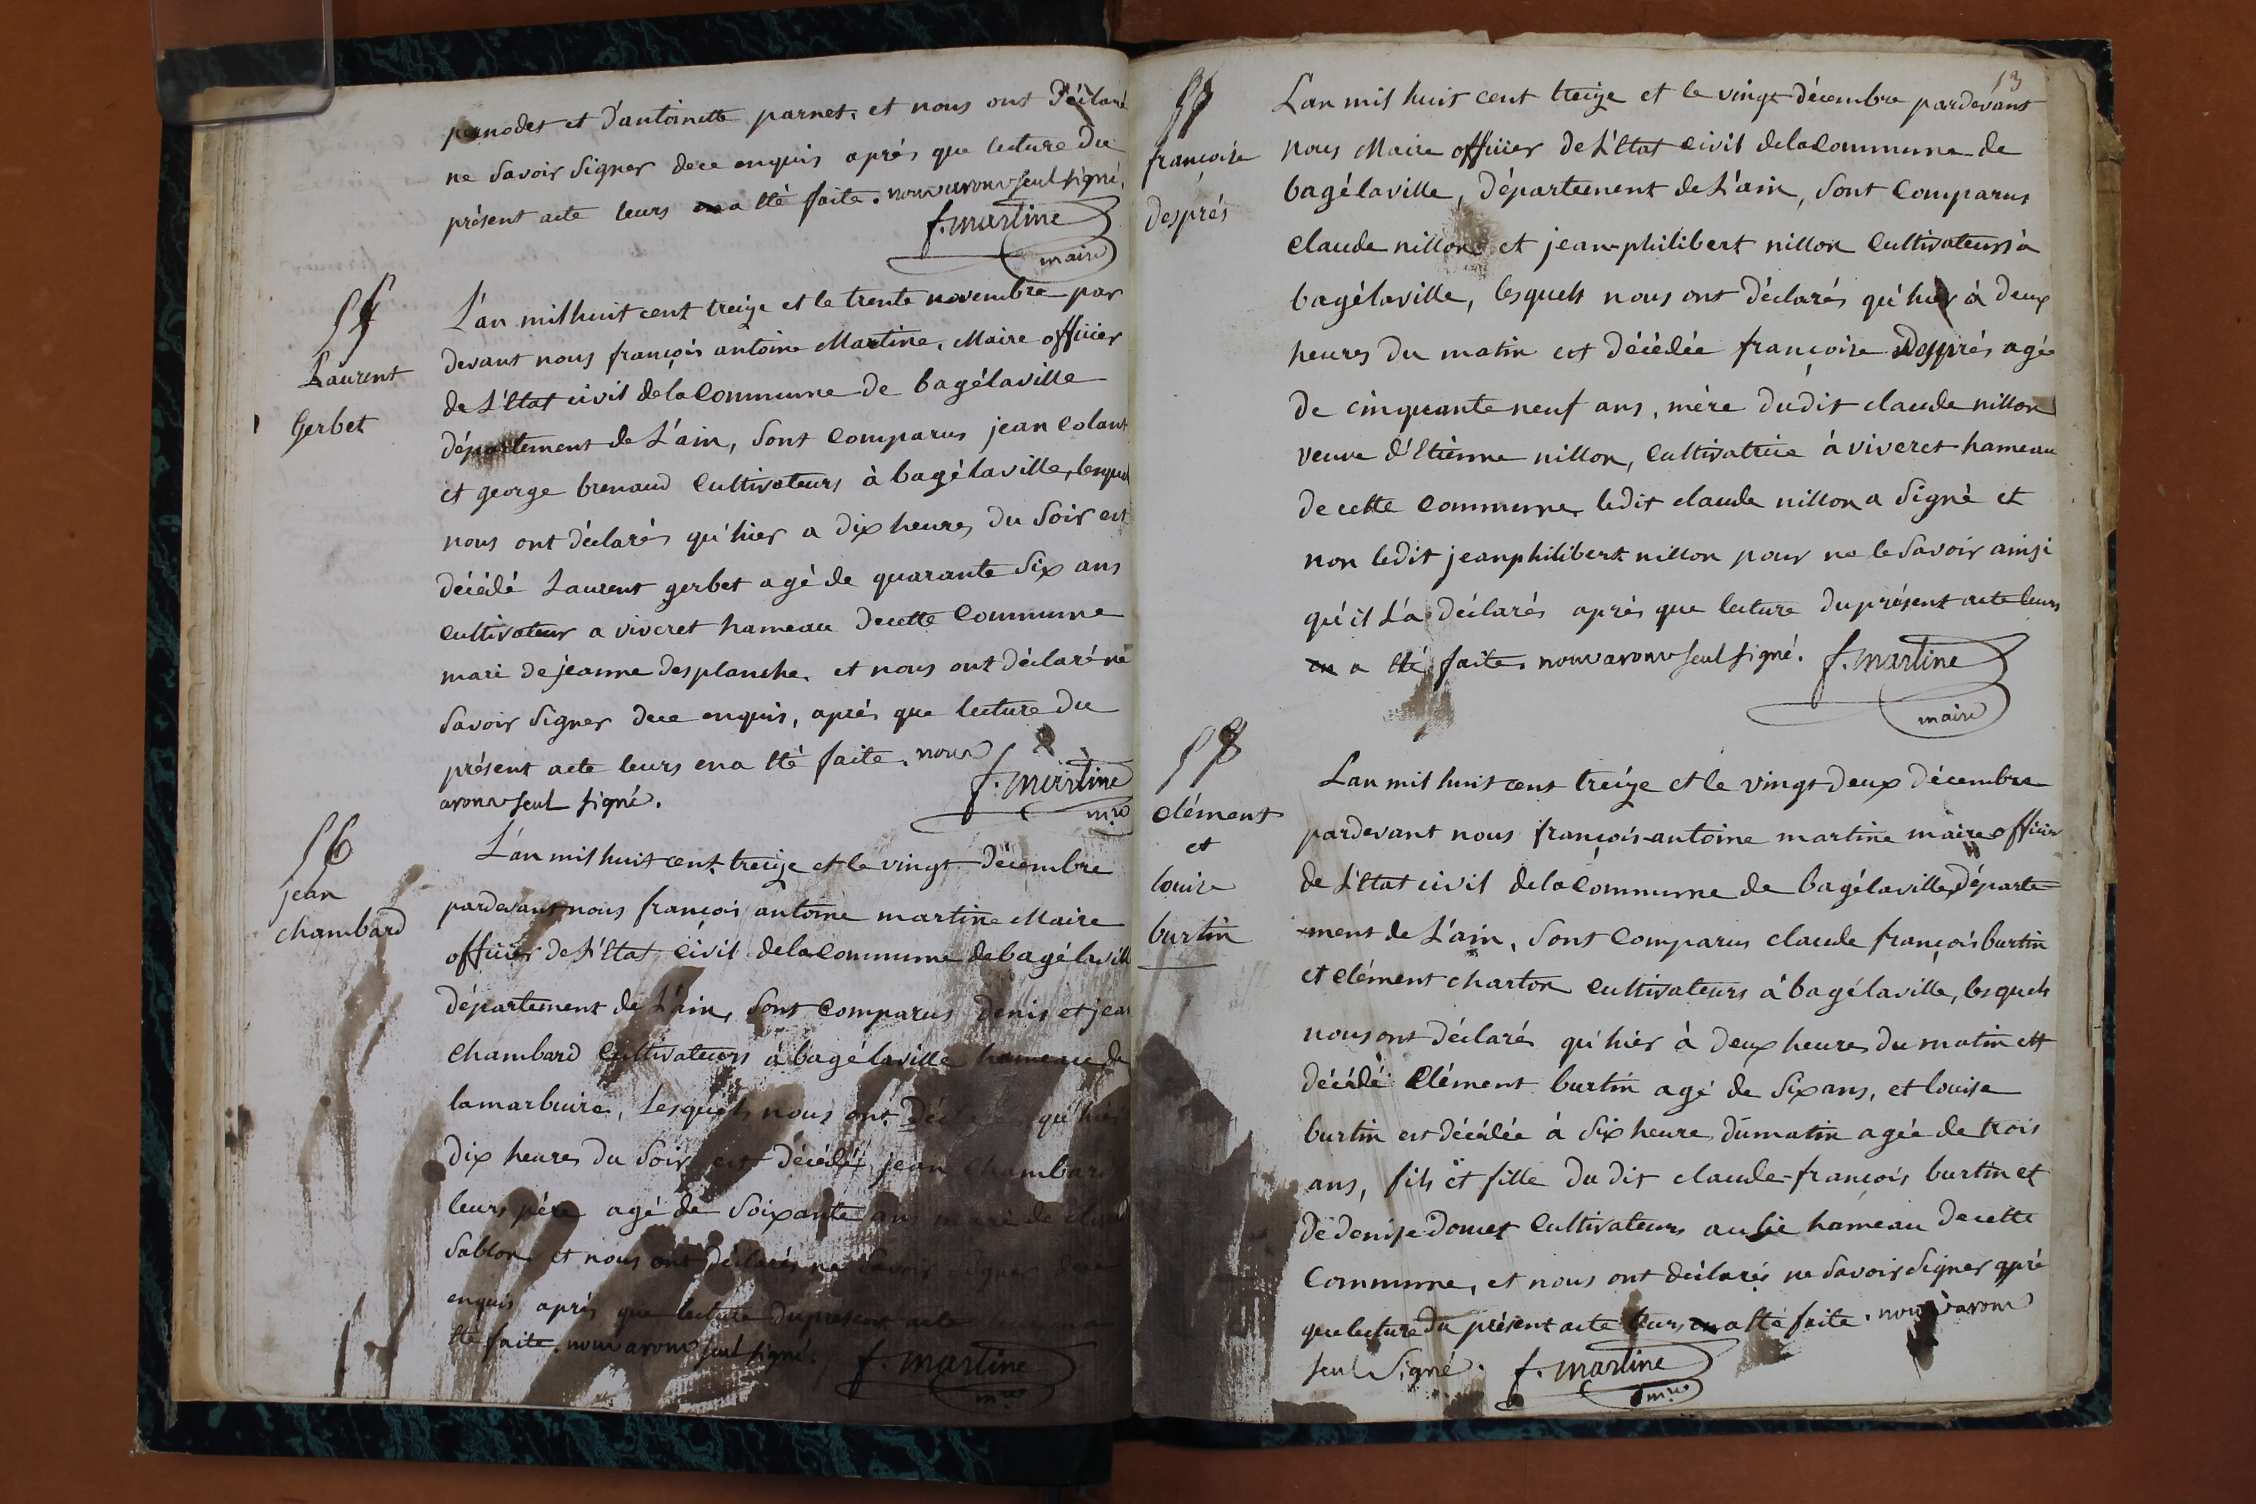 et d'antoinette parnet. et nous ont déclaré
ne savoir signer dece enquis aprés que lecture du
présent acte leurs en a été faite. nous avons seul signé.
f. martine
maire
55
Laurent
Gerbet
L'an mil huit cent treize et le trente novembre par
devant nous françois antoine Martine, Maire officier
de L'état civil dela Commune de bagélaville
département de L'ain, sont Comparus jean Colant
et george brenaud Cultivateurs à bagélaville, lesquels
nous ont déclarés qu'hier a dix heures du soir est
décédé Laurent gerbet agé de quarante six ans
Cultivateur a viveret hameau decette Commune
mari de jeanne desplanche. et nous ont déclaré ne
savoir signer dece enquis, aprés que lecture du
présent acte leurs en a été faite. nous
avons seul signé.
f. martine
mre
56
jean
chambard
L'an mil huit cent treize et le vingt décembre
pardevant nous françois antoine martine Maire
officier de L'état civil dela Commune de bagélaville
département de L'ain, sont Comparus denis et jean
Chambard Cultivateurs à bagélaville hameau de
lamarbuire, Lesquels nous ont qu'hier
dix heures du soir est décédé jean Chambard
leurs pére agé de soixante ans mari de
sablon et nous ont déclarés ne savoir signer dece
enquis aprés que lecture du présent acte
été faite. nous avons seul signé.
f. martine
mre
13
57
françoise
després
L'an mil huit cent treize et le vingt décembre pardevant
nous Maire officier de L'état civil dela Commune de
bagélaville, département de L'ain, sont Comparus
Claude nillon et jean-philibert nillon Cultivateurs à
bagélaville, lesquels nous ont déclarés qu'hier à deux
heures du matin est décédée françoise després agée
de cinquante neuf ans, mère dudit claude nillon
veuve d'étienne nillon, Cultivatrice à viveret hameau
de cette Commune ledit claude nillon a signé et
non ledit jeanphilibert nillon pour ne le savoir ainsi
qu'il L'a déclarés aprés que lecture du présent acte leurs
en a été faite. nous avons seul signé. f. martine
maire
58
clément
et
louise
burtin
L'an mil huit cent treize et le vingt deux décembre
pardevant nous françois-antoine martine maire officier
de L'état civil dela Commune de bagélaville, départe-
-ment de L'ain, sont Comparus claude françois burtin
et clément charton Cultivateurs à bagélaville, lesquels
nous ont déclarés qu'hier à deux heures du matin est
décédé Clément burtin agé de six ans, et louise
burtin est décédée à six heure du matin agée de trois
ans, fils et fille du dit claude-françois burtin et
de denise domet Cultivateurs au lié hameau decette
Commune, et nous ont déclarés ne savoir signer apré
que lecture du présent acte leurs en a été faite. nous avons
seul signé. f. martine
mre